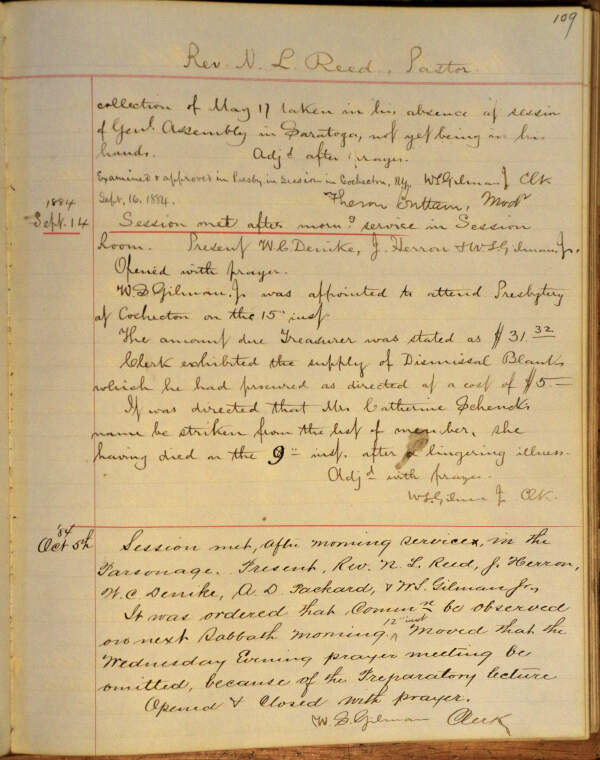 109
Rev. N. L. Reed, Pastor.
collection of May 17 taken in his absence at session
of Genl. Assembly in Saratoga, not yet being in his
hands. Adjd after prayer.
Examined & approved in Presby. in Session in Cochecton, N.Y. W.S. Gilman Jr Clk
Sept. 16. 1884. Theron Brittain, Modr
1884
Sept. 14
Session met after morng service in Session
Room. Present W.C. Denike, J. Herron & W.S. Gilman, Jr.
Opened with prayer.
W.S. Gilman, Jr was appointed to attend Presbytery
at Cochecton on the 15 inst
The amount due Treasurer was stated as $31.32
Clerk exhibited the supply of Dismissal Blanks
which he had procured as directed at a cost of $5.=
It was directed that Mrs Catherine Schencks
name be striken from the list of members, she
having died on the 9" inst. after a lingering illness.
Adjd with prayer.
W.S. Gilman Jr Clk.
'84
Oct 5th
Session met, after morning service, in the
Parsonage. Present, Rev. N. L. Reed, J. Herron,
W. C. Denike, A. D. Packard, & W.S. Gilman Jr,
It was ordered that Commn be observed
on next Sabbath morning, 12" inst Moved that the
Wednesday Evening prayer meeting be
omitted, because of the Preparatory lecture
Opened & Closed with prayer.
W. S. Gilman Clerk